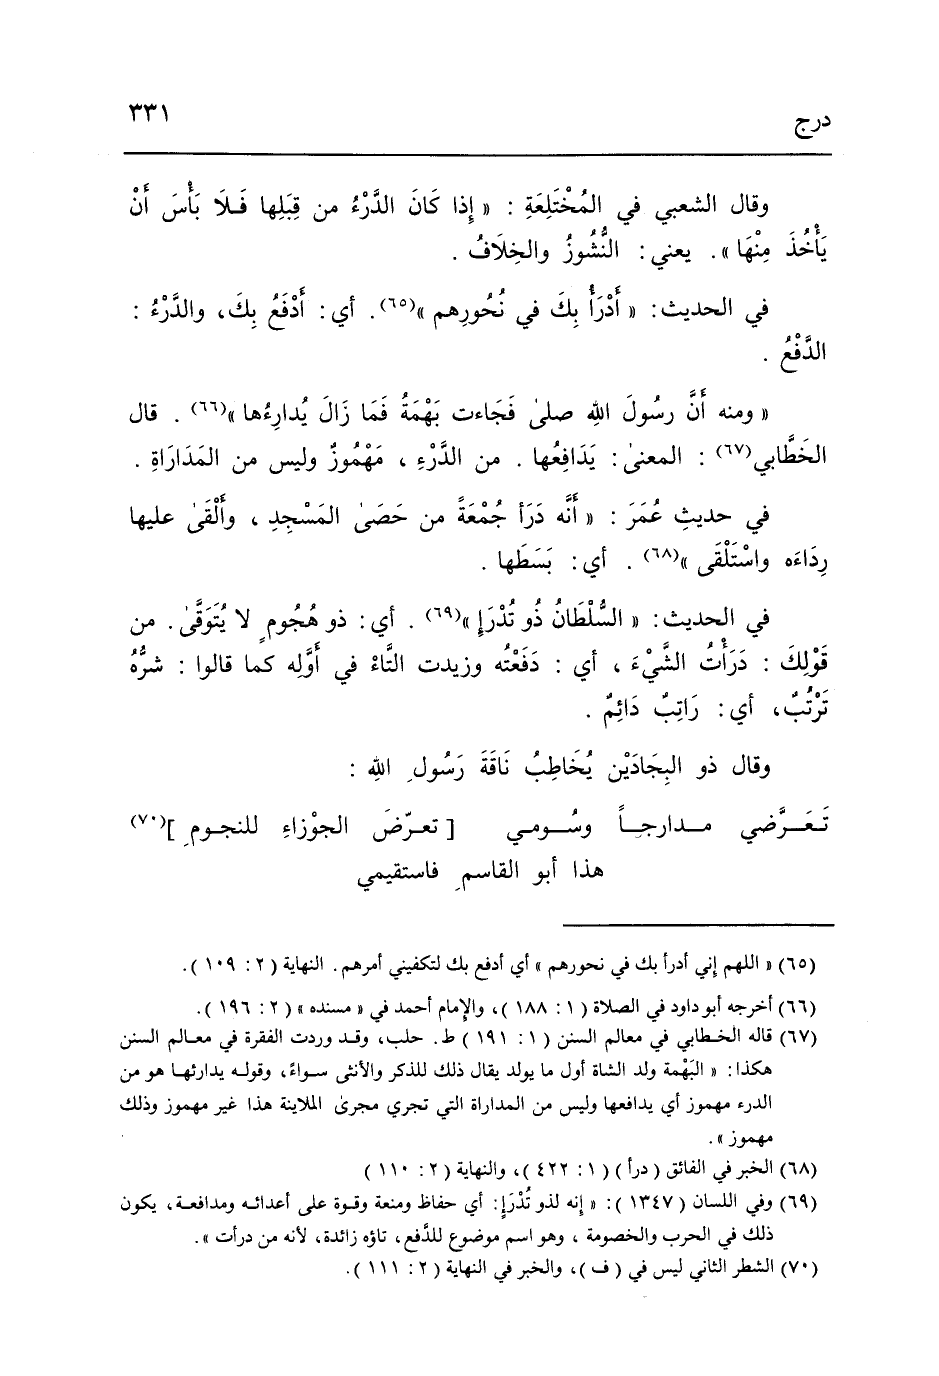 درج ٣٣١
وقال الشعبي في المُخْتَلِعَةِ : « إِذا كَانَ الدَّرْءُ من قِبَلِها فَلَا بَأْسَ أَنْ
يَأْخُذَ مِنْهَا ». يعني: النُّشُوزُ والخِلَافُ .
في الحديث: « أَدْرَأُ بِكَ في نُحُورِهم »(٦٥). أي: أَدْفَعُ بِكَ، والدَّرْءُ :
الدَّفْعُ .
« ومنه أَنَّ رسُولَ اللهِ صلىٰ فَجَاءت بَهْمَةُ فَمَا زَالَ يُدارِءُها »(٦٦) . قال
الخَطَّابي(٦٧) : المعنىٰ: يَدَافِعُها . من الدَّرْءِ ، مَهْمُوزٌ وليس من المَدَارَاةِ .
في حديثِ عُمَرَ : « أَنَّه دَرَأ جُمْعَةً من حَصَىٰ المَسْجِدِ ، وأَلْقَىٰ عليها
رِدَاءَه واسْتَلْقَى »(٦٨) . أي: بَسَطَها .
في الحديث: « السُّلْطَانُ ذُو تُدْرَإِ »(٦٩) . أي: ذو هُجُومٍ لا يُتَوَقَّىٰ. من
قَوْلِكَ : دَرَأْتُ الشَّيْءَ ، أي : دَفَعْتُه وزيدت التَّاءْ في أَوَّلِه كما قالوا : شرُّهُ
تَرْتُبٌ، أي: رَاتِبٌ دَائِمٌ .
وقال ذو البِجَادَيْن يُخَاطِبُ نَاقَةَ رَسُولِ اللهِ :
تَعَرَّضي مدارجاً وسُومي [ تعرّضَ الجوْزاءِ للنجومِ ](٧٠)
هذا أبو القاسمِ فاستقيمي
(٦٥) « اللهم إني أدرأ بك في نحورهم » أي أدفع بك لتكفيني أمرهم. النهاية ( ٢: ١٠٩ ).
(٦٦) أخرجه أبو داود في الصلاة ( ١: ١٨٨ )، والإمام أحمد في « مسنده » ( ٢: ١٩٦ ).
(٦٧) قاله الخطابي في معالم السنن ( ١: ١٩١ ) ط. حلب، وقد وردت الفقرة في معالم السنن
هكذا: « البَهْمة ولد الشاة أول ما يولد يقال ذلك للذكر والأنثى سواءً، وقوله يدارئها هو من
الدرء مهموز أي يدافعها وليس من المداراة التي تجري مجرىٰ الملاينة هذا غير مهموز وذلك
مهموز ».
(٦٨) الخبر في الفائق ( درأ ) ( ١: ٤٢٢ )، والنهاية ( ٢: ١١٠ )
(٦٩) وفي اللسان ( ١٣٤٧ ): « إنه لذو تُدْرَإٍ: أي حفاظ ومنعة وقوة على أعدائه ومدافعة، يكون
ذلك في الحرب والخصومة ، وهو اسم موضوع للدَّفع، تاؤه زائدة، لأنه من درأت ».
(٧٠) الشطر الثاني ليس في ( ف )، والخبر في النهاية ( ٢: ١١١ ).